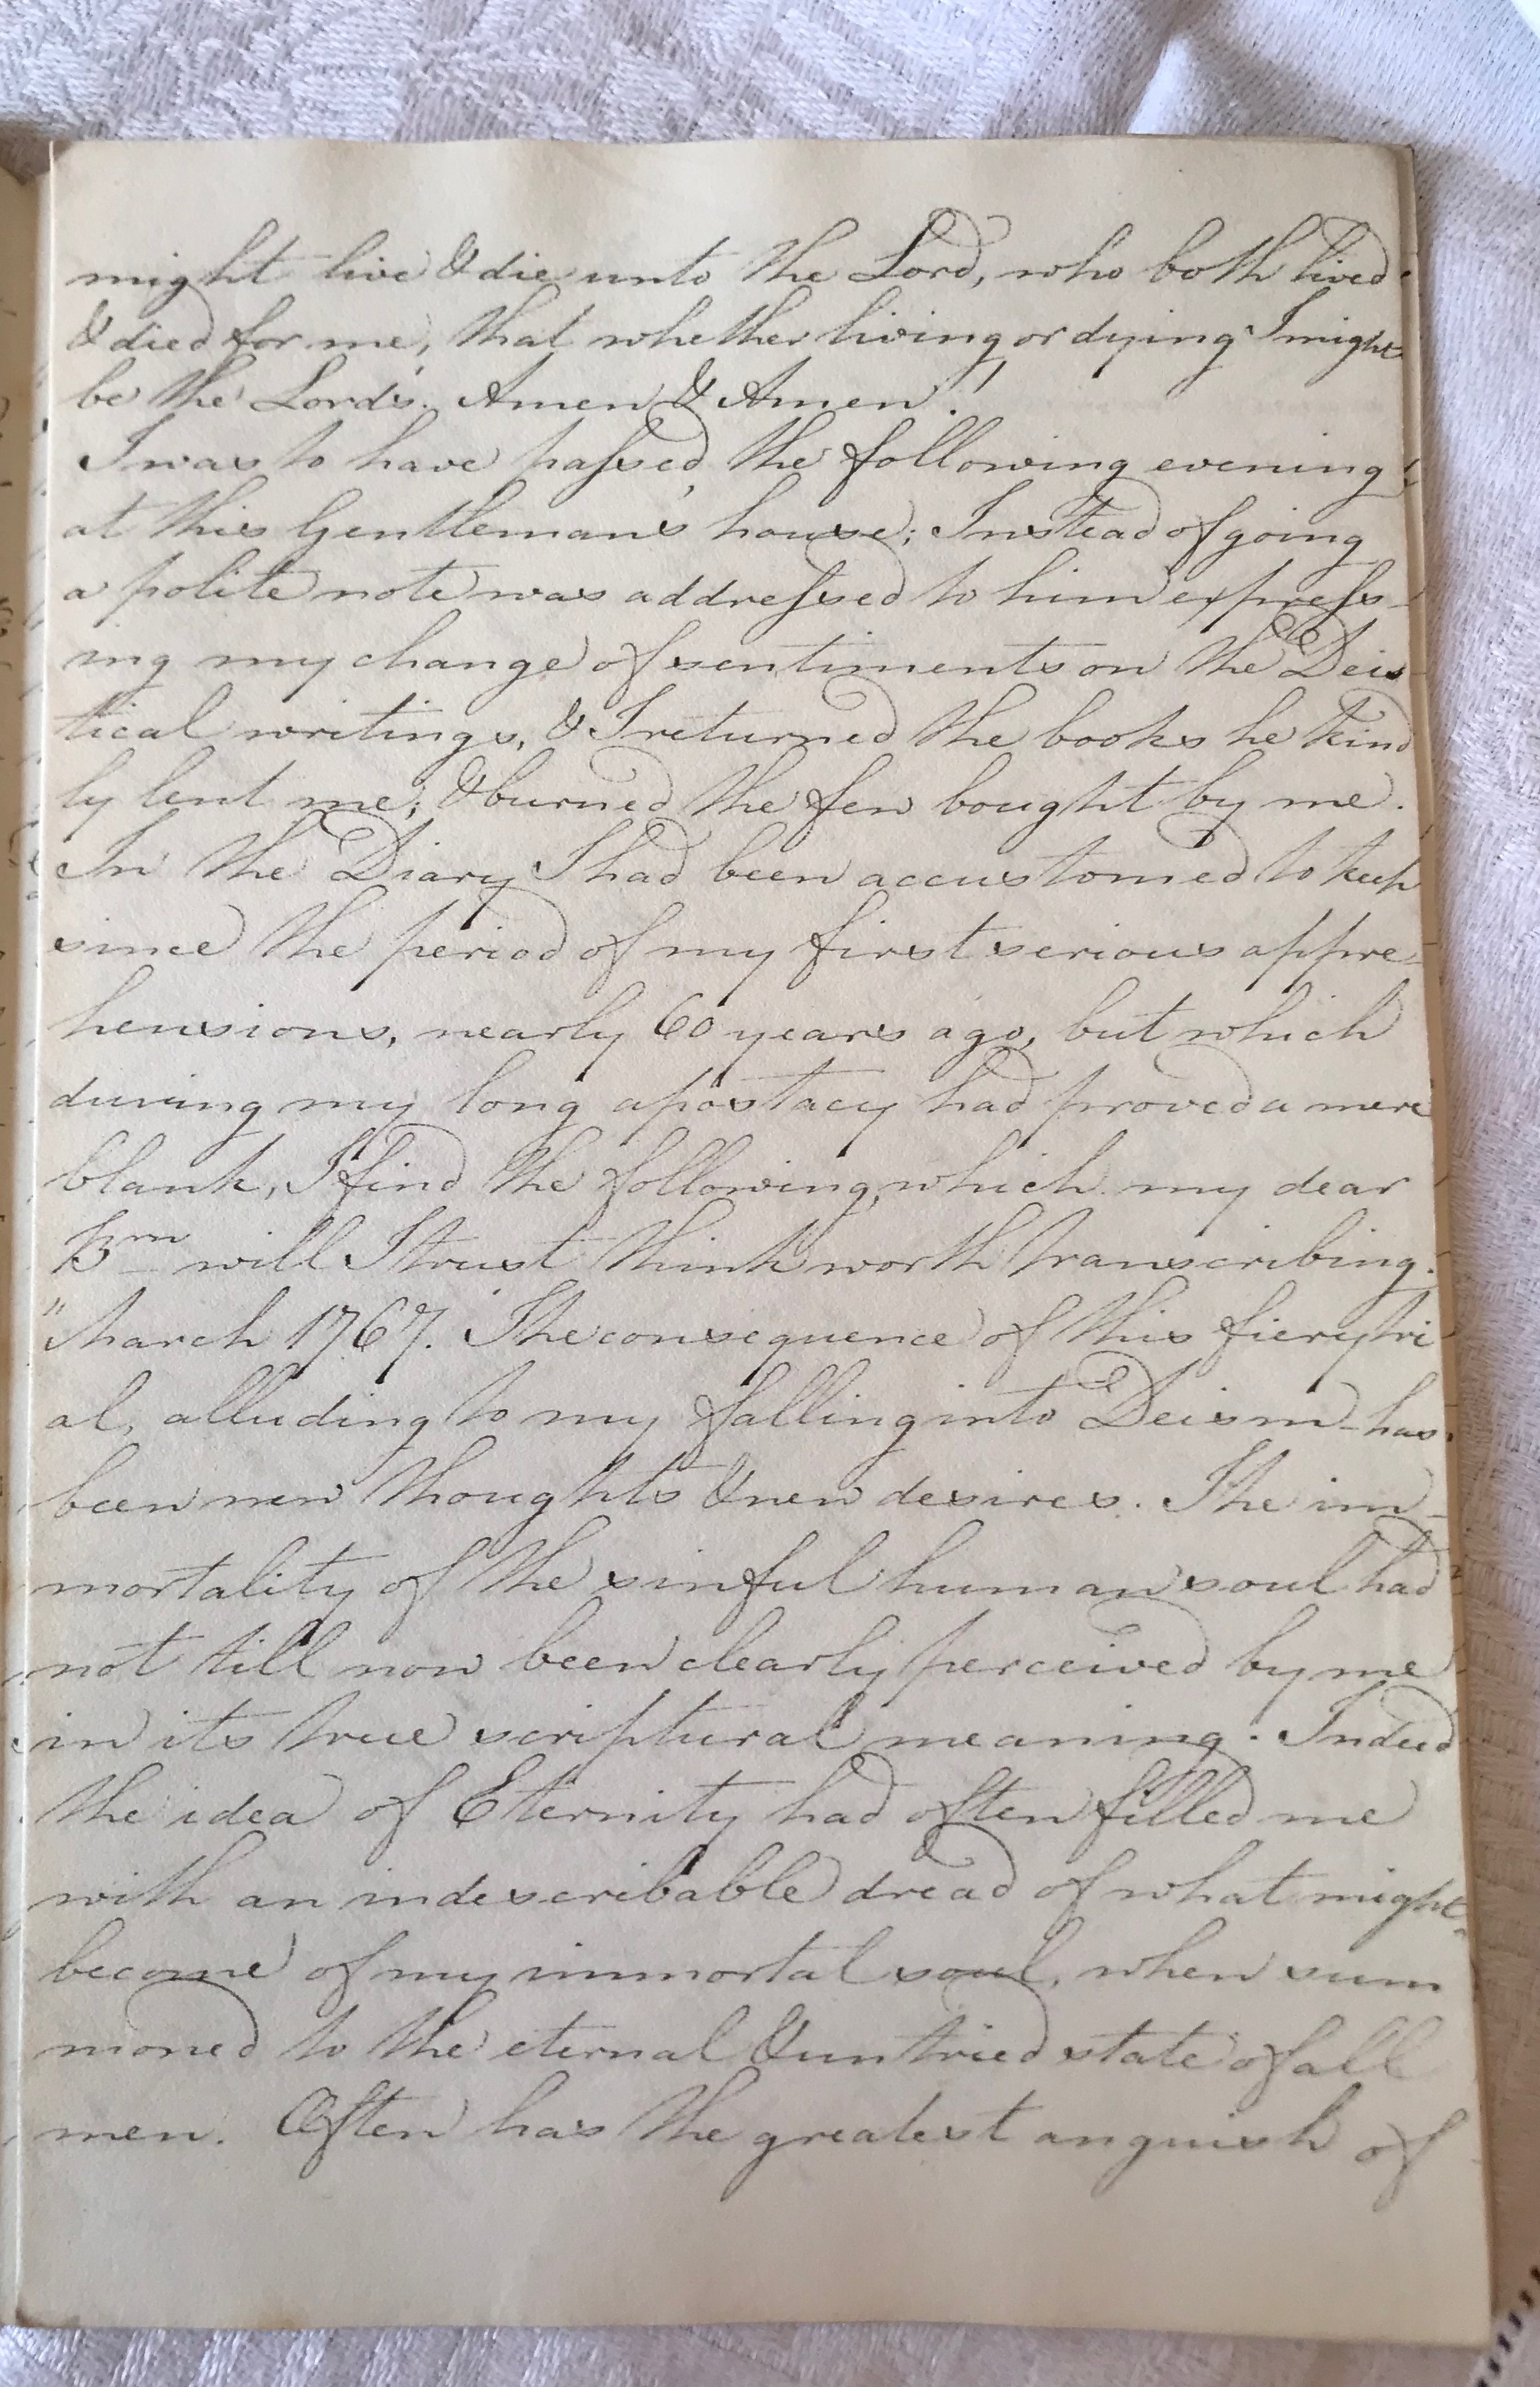 might live & die unto the Lord, who both lived
& died for me, that whether living or dying I might
be the Lord's. Amen & Amen!
I was to have passed, the following evening,
at this Gentleman's house; Instead of going
a polite note was addressed to him express-
ing my change of sentiments on the Deis
tical writings, & I returned the books he kind
ly lent me; & burned the few bought by me.
In the Diary I had been accustomed to keep
since the period of my first serious appre
hensions, nearly 60 years ago, but which
during my long apostacy had proved a mere
blank, I find the following, which my dear
Bm will I trust think worth transcribing.
"March 1767. The consequence of this fiery tri
al, alluding to my falling into Deism - has
been new thoughts & new desires. The im-
mortality of the sinful human soul had
not till now been clearly perceived by me
in its true scriptural meaning. Indeed
the idea of Eternity had often filled me
with an indescribable dread of what might
become of my immortal soul, when sum
moned to the eternal & untried state of all
men. Often has the greatest anguish of